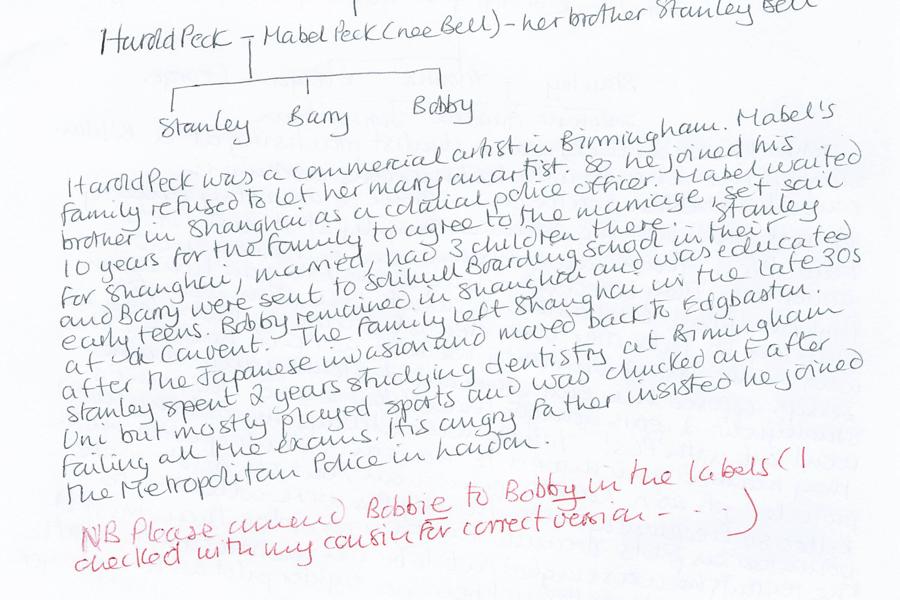 Harold Peck - Mabel Peck (nee Bell) - her brother Stanley Bell
Stanley Barry Bobby
Harold Peck was a commercial artist in Birmingham. Mabel's
family refused to let her marry an artist. So he joined his
brother in Shanghai as a colonial police officer. Mabel waited
10 years for the family to agree to the marriage, set sail
for Shanghai, married, had 3 children there. Stanley
and Barry were sent to Solihull Boarding School in their
early teens. Bobby remained in Shanghai and was educated
at a Convent. The family left Shanghai in the late 30s
after the Japanese invasion and moved back to Edgbaston.
Stanley spent 2 years studying dentistry at Birmingham
Uni but mostly played sports and was chucked out after
failing all the exams. His angry father insisted he joined
the Metropolitan Police in London.
NB Please amend Bobbie to Bobby in the labels (I
checked with my cousin for correct version . . . )